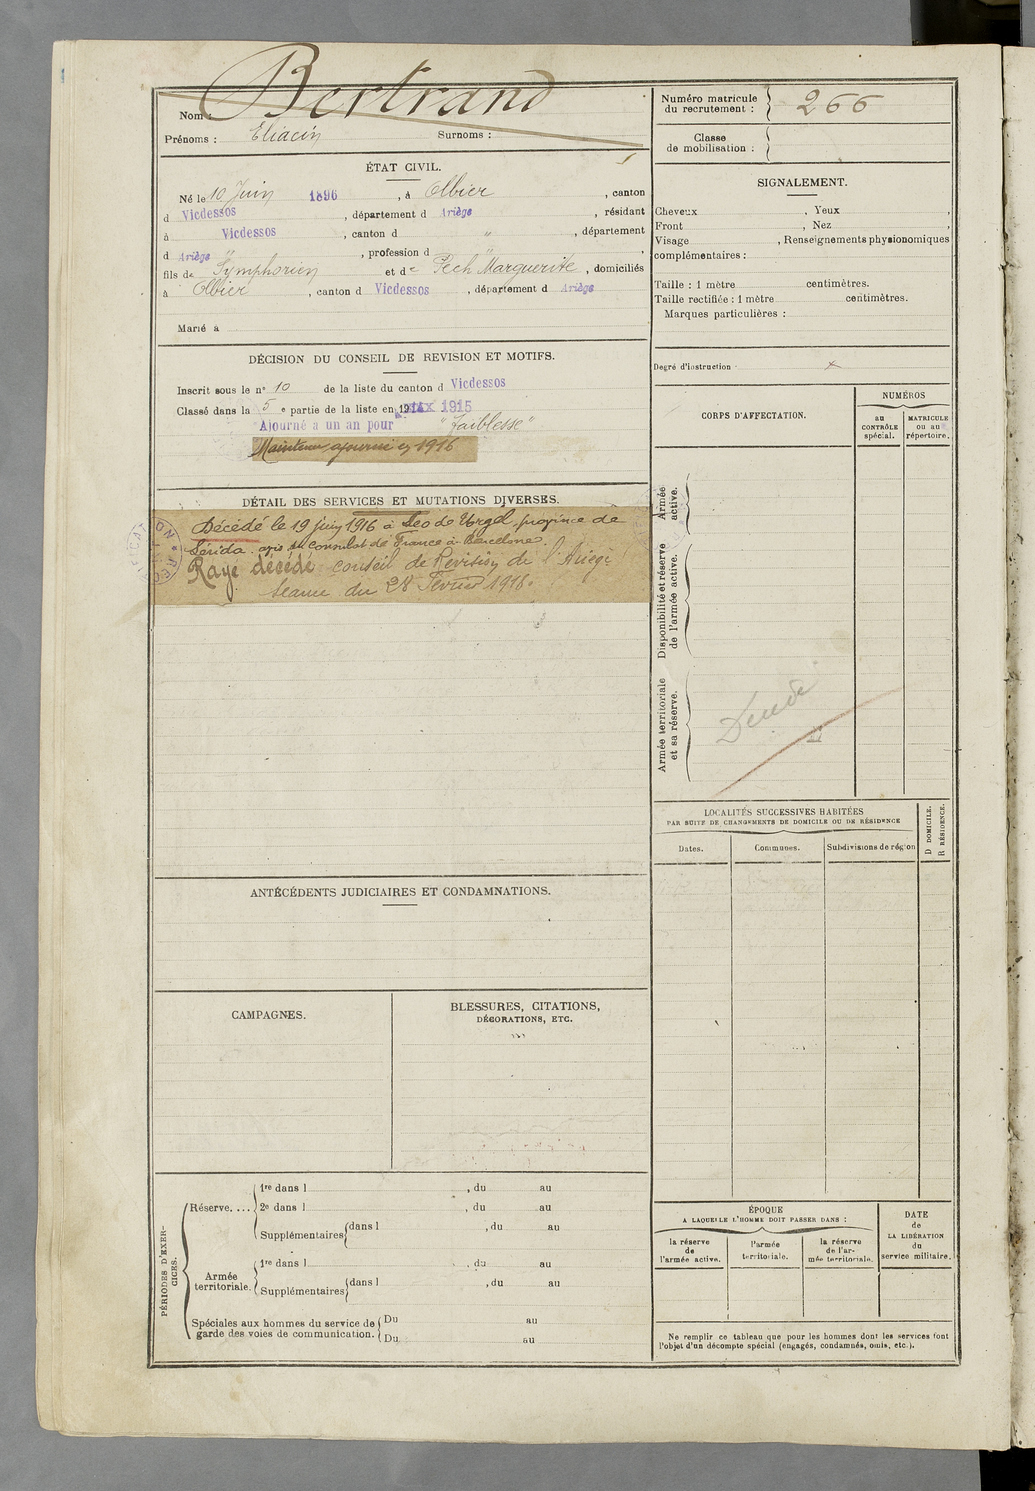 Nom : Bertrand
Prénoms : Eliacin Surnoms :
ÉTAT CIVIL.
Né le 10 Juin 1896, à Olbier, canton
d Vicdessos, département d Ariège, résidant
à Vicdessos, canton d „, département
d Ariège, profession d „,
fils de Symphorien et de Pech Marguerite, domiciliés
à Olbier, canton d Vicdessos, département d Ariège
Marié à
DÉCISION DU CONSEIL DE REVISION ET MOTIFS.
Inscrit sous le n° 10 de la liste du canton d Vicdessos
Classé dans la 5e partie de la liste en 1915
Ajourné à un an pour "faiblesse"
Maintenu ajourné en 1916
DÉTAIL DES SERVICES ET MUTATIONS DIVERSES.
Décédé le 19 juin 1916 à Seo de Urgel, province de
Lérida. avis du Consulat de France à Barcelone.
Rayé décédé conseil de Révision de l'Ariège
séance du 28 Février 1918.
ANTÉCÉDENTS JUDICIAIRES ET CONDAMNATIONS.
CAMPAGNES.
BLESSURES, CITATIONS,
DÉCORATIONS, ETC.
PÉRIODES D'EXERCICES.
Réserve....
1re dans l , du au
2e dans l , du au
Supplémentaires dans l , du au
Armée
territoriale.
1re dans l , du au
Supplémentaires dans l , du au
Spéciales aux hommes du service de
garde des voies de communication.
Du au
Du au
Numéro matricule
du recrutement : 266
Classe
de mobilisation :
SIGNALEMENT.
Cheveux , Yeux ,
Front , Nez ,
Visage , Renseignements physionomiques
complémentaires :
Taille : 1 mètre centimètres.
Taille rectifiée : 1 mètre centimètres.
Marques particulières :
Degré d'instruction x
CORPS D'AFFECTATION.
NUMÉROS
au
CONTRÔLE
spécial.
MATRICULE
ou au
répertoire.
Armée
active.
Disponibilité et réserve
de l'armée active.
Armée territoriale
et sa réserve.
LOCALITÉS SUCCESSIVES HABITÉES
PAR SUITE DE CHANGEMENTS DE DOMICILE OU DE RÉSIDENCE
D DOMICILE.
R RÉSIDENCE.
Dates. Communes. Subdivisions de région
ÉPOQUE
A LAQUELLE L'HOMME DOIT PASSER DANS :
la réserve
de
l'armée active.
l'armée
territoriale.
la réserve
de l'ar-
mée territoriale.
DATE
de
LA LIBÉRATION
du
service militaire.
Ne remplir ce tableau que pour les hommes dont les services font
l'objet d'un décompte spécial (engagés, condamnés, omis, etc.).